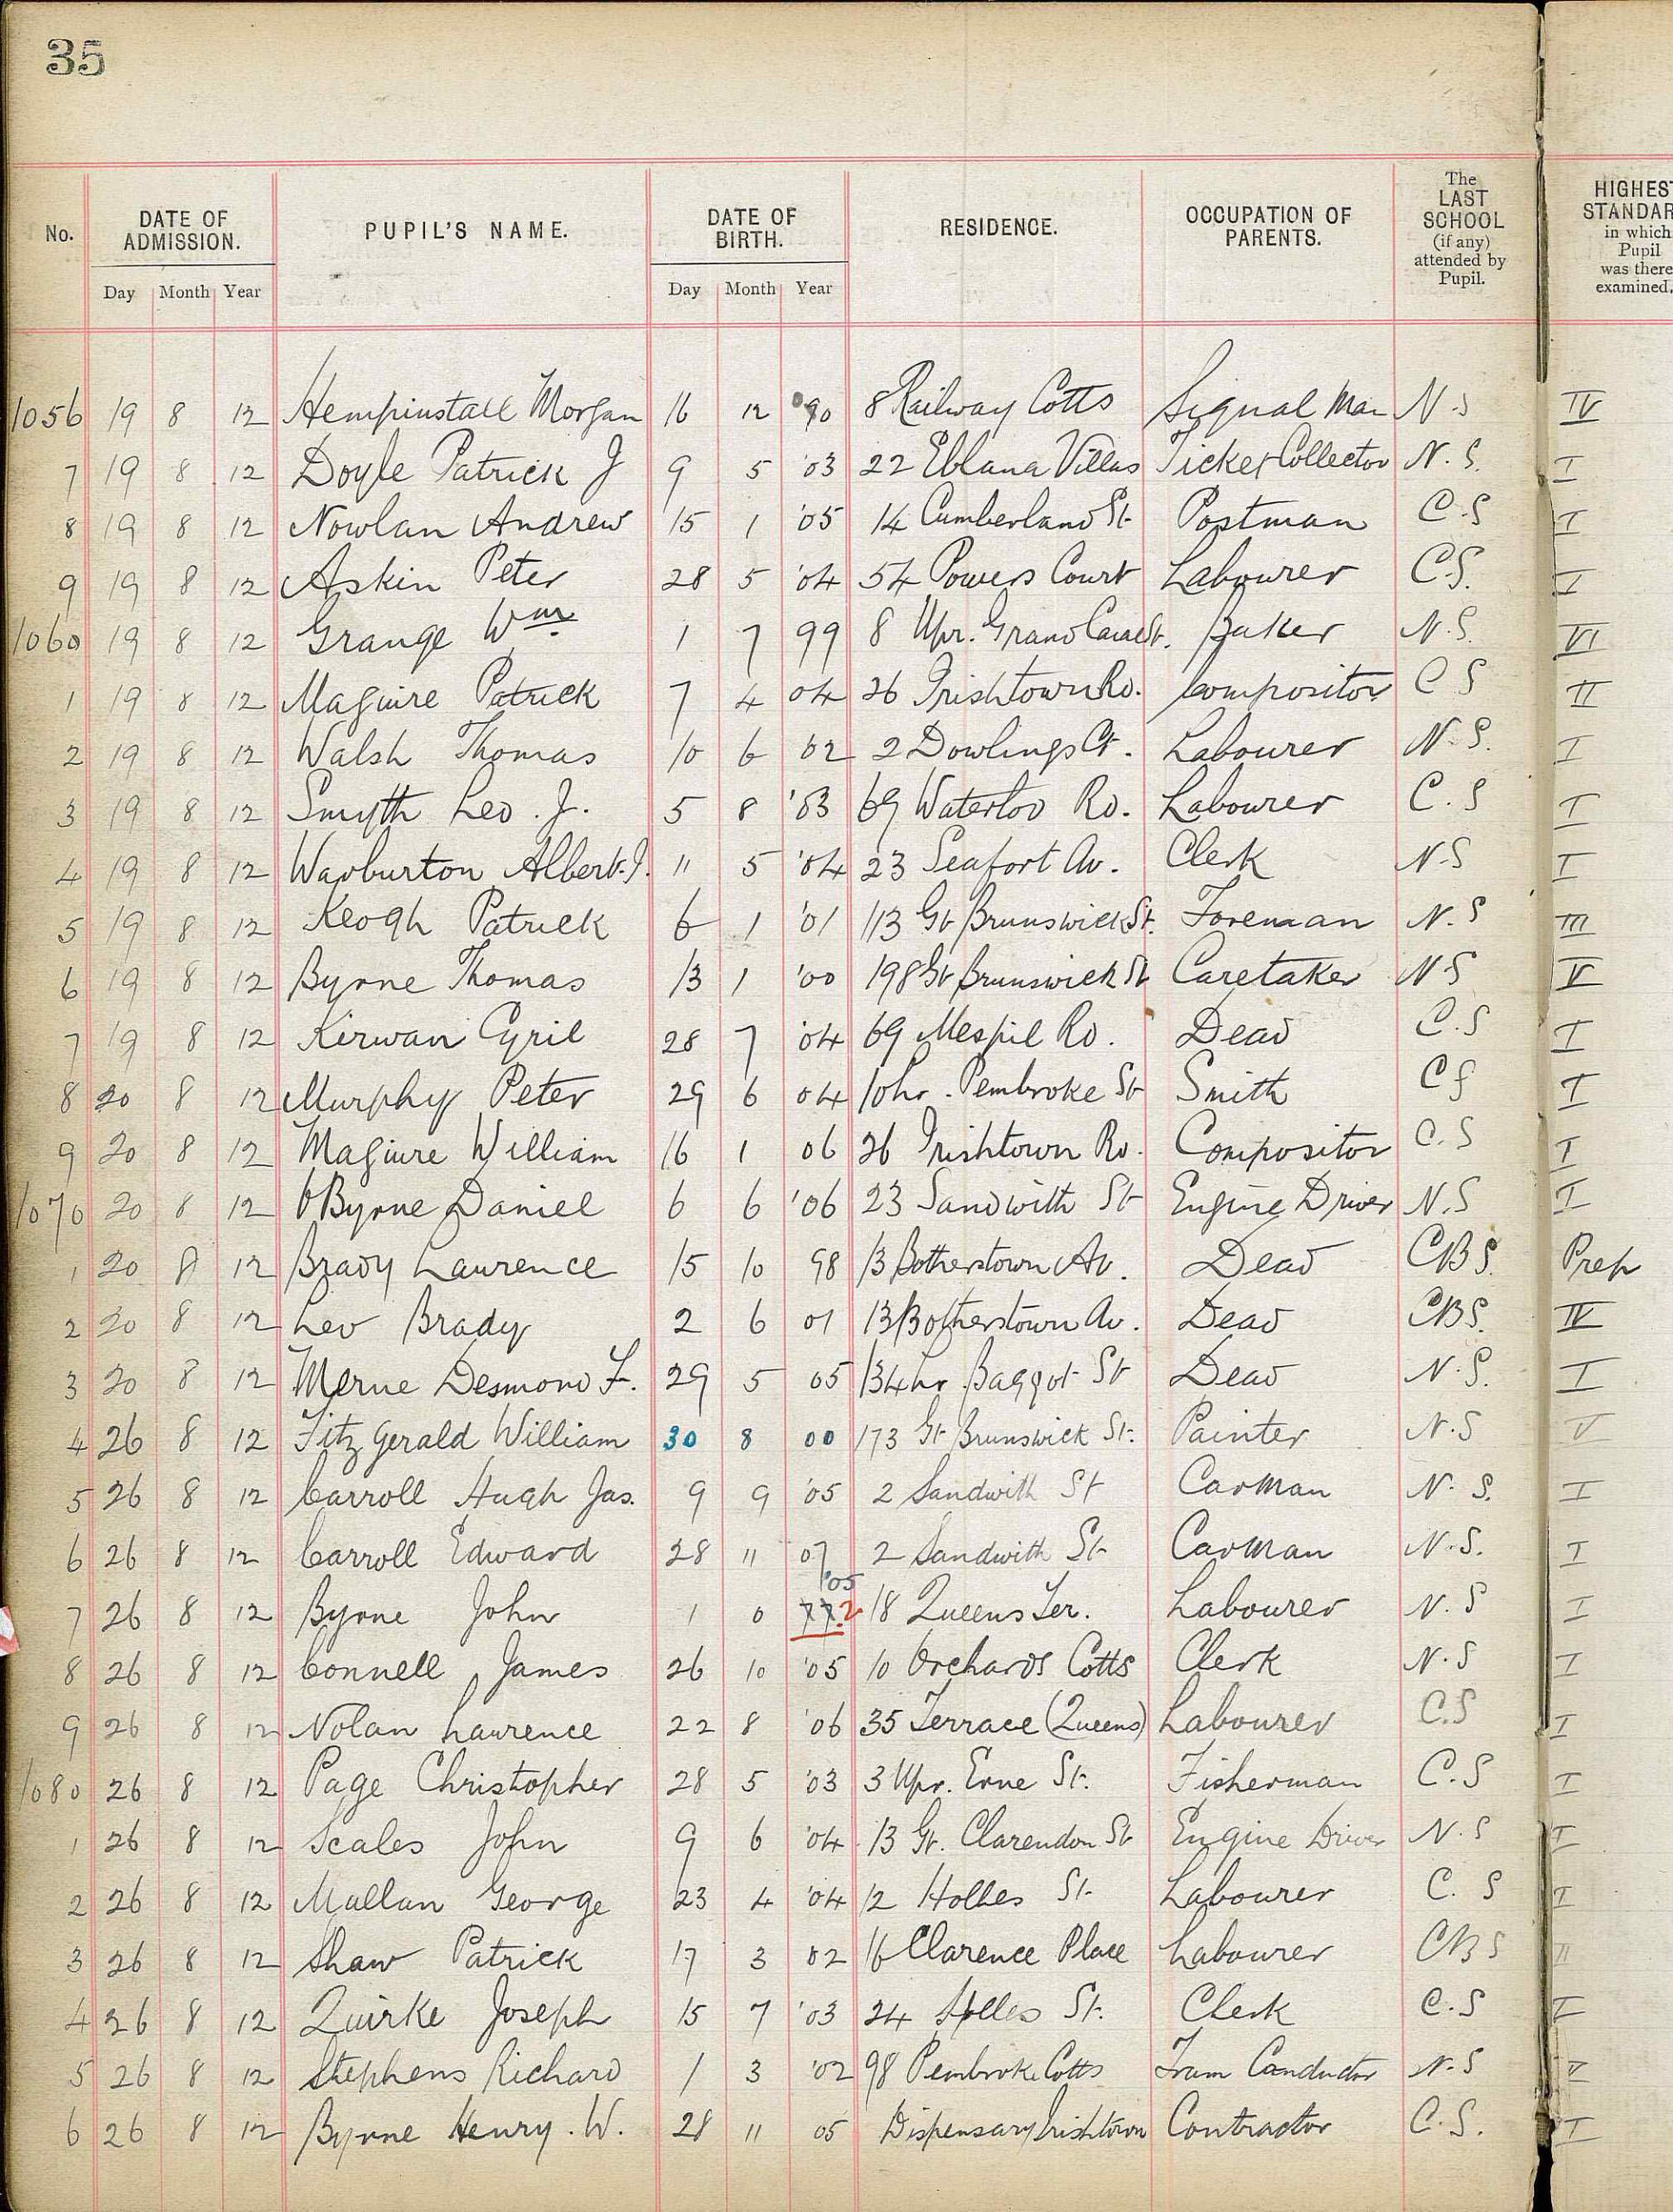 35
No. DATE OF ADMISSION. PUPIL'S NAME. DATE OF BIRTH. RESIDENCE. OCCUPATION OF PARENTS. The LAST SCHOOL (if any) attended by Pupil. HIGHEST STANDAR in which Pupil was there examined.
Day Month Year Day Month Year
1056 19 8 12 Hempinstall Morgan 16 12 8 Railway Cotts Signal Man N.S IV
7 19 8 12 Doyle Patrick J 9 5 '03 22 Eblana Villas Ticket Collector N.S. I
8 19 8 12 Nowlan Andrew 15 1 '05 14 Cumberland St. Postman C.S I
9 19 8 12 Askin Peter 28 5 '04 54 Powers Court Labourer C.S. I
1060 19 8 12 Grange Wm 1 7 99 8 Upr. Grand Canal St. Baker N.S. VI
1 19 8 12 Maguire Patrick 7 4 04 26 Irishtown Rd. Compositor C S II
2 19 8 12 Walsh Thomas 10 6 '02 2 Dowlings Ct. Labourer N.S. I
3 19 8 12 Smyth Leo. J. 5 8 '03 69 Waterloo Rd. Labourer C.S I
4 19 8 12 Warburton Albert. J. 11 5 '04 23 Seafort Av. Clerk N.S I
5 19 8 12 Keogh Patrick 6 1 '01 113 Gt Brunswick St. Foreman N.S III
6 19 8 12 Byrne Thomas 13 1 '00 198 Gt Brunswick St Caretaker N.S V
7 19 8 12 Kirwan Cyril 28 7 '04 69 Mespil Rd. Dead C.S I
8 20 8 12 Murphy Peter 29 6 04 10 Lr. Pembroke St Smith C S I
9 20 8 12 Maguire William 16 1 06 26 Irishtown Rd. Compositor C.S I
1070 20 8 12 O'Byrne Daniel 6 6 '06 23 Sandwith St Engine Driver N.S I
1 20 8 12 Brady Laurence 15 10 98 13 Botherstown Av. Dead CBS. Prep
2 20 8 12 Leo Brady 2 6 01 13 Botherstown Av. Dead CBS. IV
3 20 8 12 Merne Desmond F. 29 5 05 134 Lr. Baggot St Dead N.S. I
4 26 8 12 Fitzgerald William 30 8 00 173 Gt Brunswick St. Painter N.S V
5 26 8 12 Carroll Hugh Jas. 9 9 '05 2 Sandwith St Carman N.S. I
6 26 8 12 Carroll Edward 28 11 07 2 Sandwith St Carman N.S. I
'05
7 26 8 12 Byrne John 1 0 77.2 18 Queens Ter. Labourer N.S I
8 26 8 12 Connell James 26 10 '05 10 Orchards Cotts Clerk N.S I
9 26 8 12 Nolan Laurence 22 8 '06 35 Terrace (Queens) Labourer C.S I
1080 26 8 12 Page Christopher 28 5 '03 3 Upr. Erne St. Fisherman C.S I
1 26 8 12 Scales John 9 6 '04 13 Gt. Clarendon St Engine Driver N.S I
2 26 8 12 Mallan George 23 4 '04 12 Holles St. Labourer C. S I
3 26 8 12 Shaw Patrick 17 3 02 16 Clarence Place Labourer CBS II
4 26 8 12 Quirke Joseph 15 7 '03 24 Holles St. Clerk C.S I
5 26 8 12 Stephens Richard 1 3 '02 98 Pembroke Cotts Tram Conductor N.S
6 26 8 12 Byrne Henry. W. 28 11 05 Dispensary Irishtown Contractor C.S. I